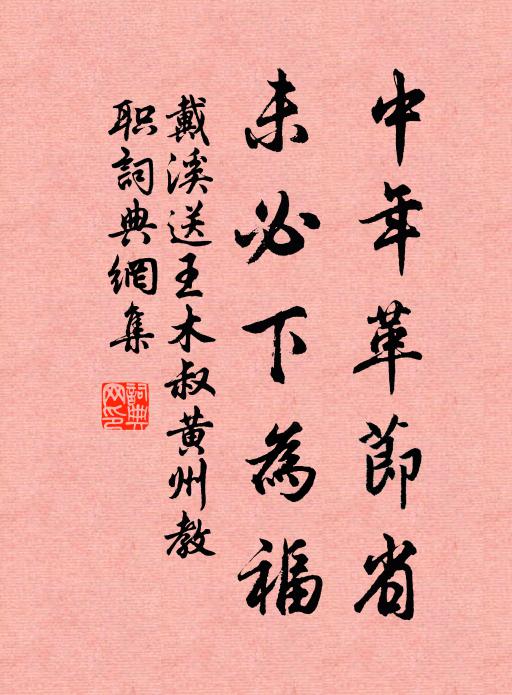 中年革節省
未必下為福
戴溪送王木叔黄州教
职詞典網集
詞典网印